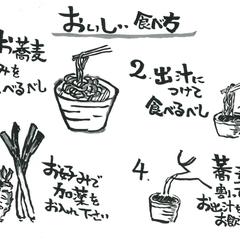 おいしい食べ方
お蕎麦
みを
べるべし
2.出汁に
つけて
食べるべし
お好みで
加薬を
お入れ下さい
4.
蕎麦
割り
お出汁を
お飲